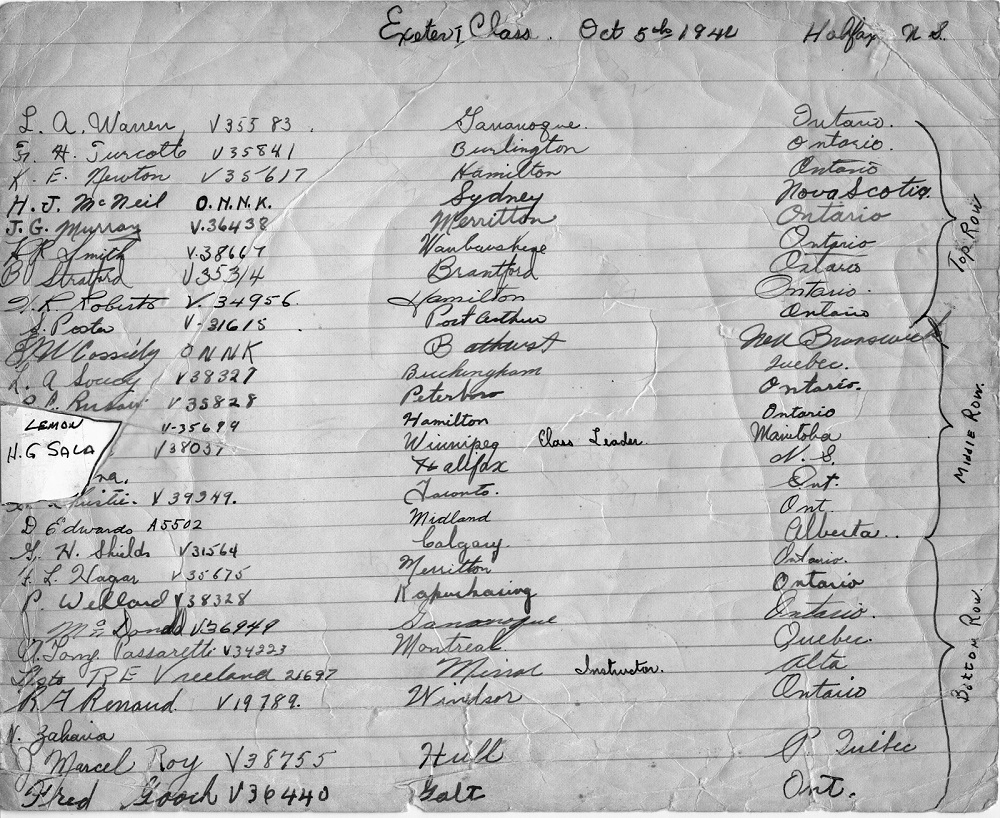 Exeter I Class. Oct 5th 1942 Halifax N S.
L. A. Warren V35583. Gananoque. Ontario.
H. Turcotte V35841 Burlington Ontario.
K. E. Newton V35617 Hamilton Ontario
H. J. McNeil O.N.N.K. Sydney Nova Scotia.
J. G. Murray V.36438 Merritton Ontario
Smith V.38667 Ontario
B Stratford V35314 Brantford Ontario
Roberts V.34956 Hamilton Ontario.
V-31615. Port Arthur Ontario
Top Row
W Cassidy ONNK Bathurst New Brunswick
L. A Soucy V38327 Buckingham Quebec.
V35828 Peterboro Ontario.
LEMON V-35699 Hamilton Ontario
H.G SALA V38037 Winnipeg Class Leader. Manitoba
na. Halifax N. S.
V39249. Toronto. Ont.
Middle Row.
D Edwards A5502 Midland Ont.
G. H. Shields V31564 Calgary. Alberta.
L. Hagar V35675 Merritton Ontario.
P. Wellard V38328 Kapuskasing Ontario
McDonald V36949 Gananoque Ontario.
Tony Passaretti V34223 Montreal Quebec.
R E Vreeland 21697 Instructor. Alta
R. A Renaud. V19789. Windsor Ontario
N. Zaharia
J Marcel Roy V38755 Hull P. Québec
Fred Gooch V36440 Galt Ont.
Bottom Row.